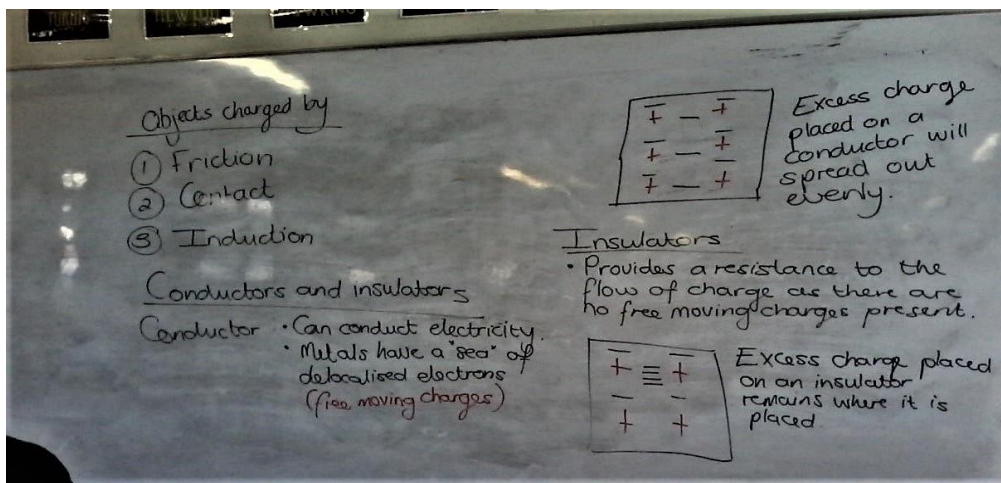 Objects charged by
① Friction
② Contact
③ Induction
Conductors and insulators
Conductor · Can conduct electricity.
· Metals have a "sea" of
delocalised electrons
(free moving charges)
Excess charge
placed on a
conductor will
spread out
evenly.
Insulators
· Provides a resistance to the
flow of charge as there are
no free moving charges present.
Excess charge placed
on an insulator
remains where it is
placed